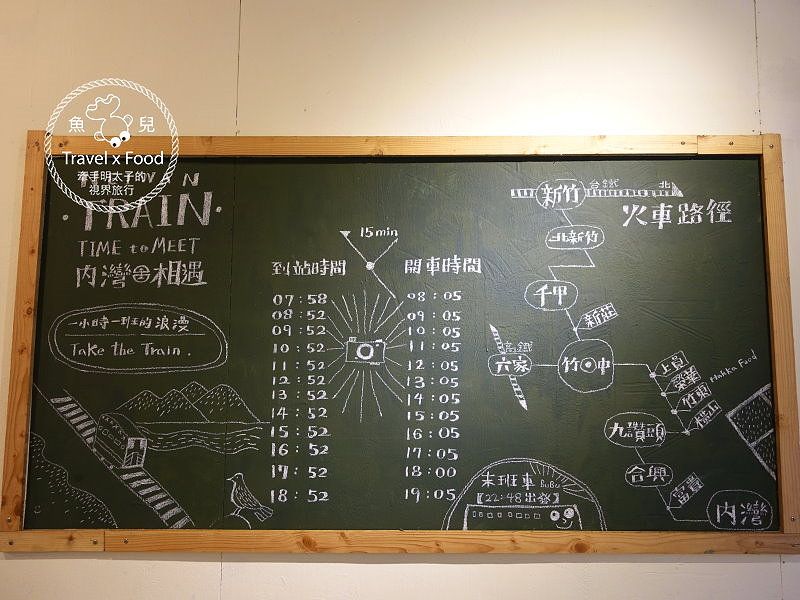 魚 兒
Travel x Food
牽手明太子的
視界旅行
TRAIN
TIME to MEET
內灣 相遇
一小時一班的浪漫
Take the Train.
15min
到站時間 開車時間
07:58 08:05
08:52 09:05
09:52 10:05
10:52 11:05
11:52 12:05
12:52 13:05
13:52 14:05
14:52 15:05
15:52 16:05
16:52 17:05
17:52 18:00
18:52 19:05
末班車 BuBu
【22:48出發】
火車路徑
台鐵 北
新竹
北新竹
千甲
新莊
高鐵
六家
竹中
上員
榮華
竹東
橫山
Hakka Food
九讚頭
合興
富貴
內灣